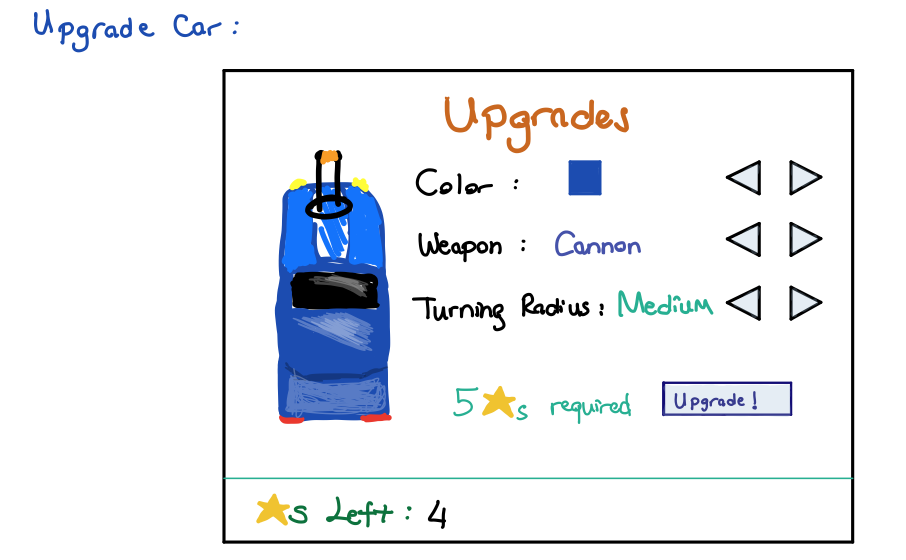 Upgrade Car:
Upgrades
Color :
Weapon : Cannon
Turning Radius: Medium
5 s required
Upgrade!
s Left: 4